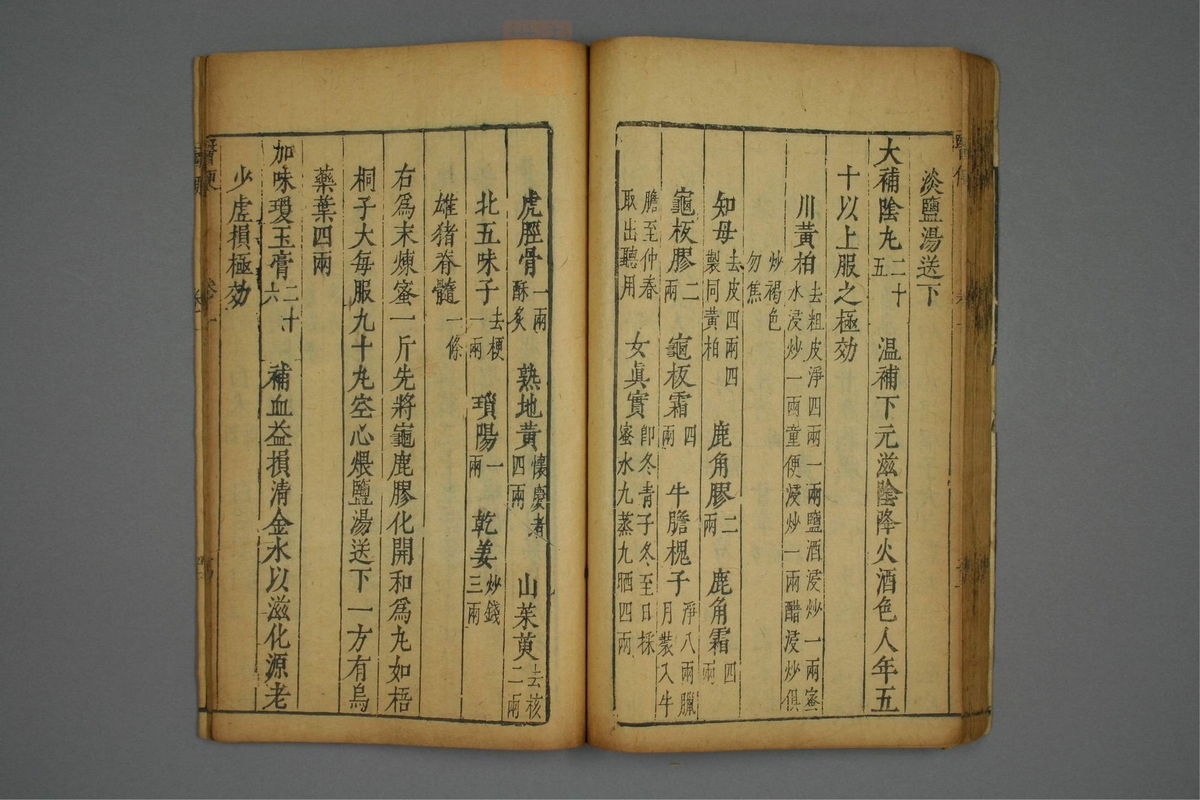 淡鹽湯送下
大補陰丸二十五　溫補下元滋陰降火酒色人年五
十以上服之極効
川黃柏去粗皮淨四兩一兩鹽酒浸炒一兩蜜水浸炒一兩童便浸炒一兩醋浸炒俱
炒褐色勿焦
知母去皮四兩四製同黃柏　鹿角膠二兩　鹿角霜四兩
龜板膠二兩　龜板霜四兩　牛膽槐子淨八兩臘月裝入牛
膽至仲春取出聽用　女眞實卽冬青子冬至日採蜜水九蒸九晒四兩
虎脛骨一兩酥炙　熟地黃懷慶者四兩　山茱萸去核二兩
北五味子去梗一兩　瑣陽一兩　乾姜炒錢三兩
雄猪脊髓一條
右爲末煉蜜一斤先將龜鹿膠化開和爲丸如梧
桐子大每服九十丸空心煖鹽湯送下一方有烏
藥葉四兩
加味瓊玉膏二十六　補血益損清金水以滋化源老
少虛損極効